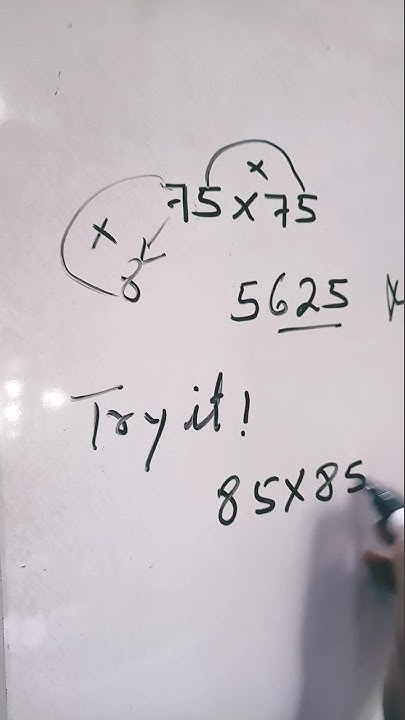 ×
75 × 75
×
8
5625
Try it!
85 × 85